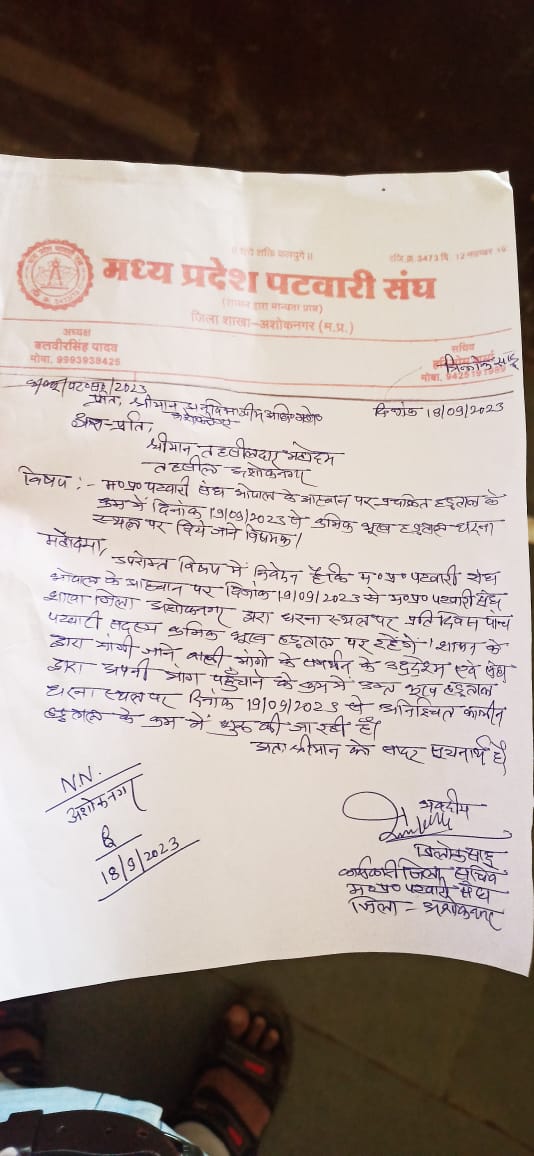 ॥ संघे शक्ति कलयुगे ॥
रजि क्र. 3473 दि. 12 नवम्बर
मध्य प्रदेश पटवारी संघ
(शासन द्वारा मान्यता प्राप्त)
जिला शाखा-अशोकनगर (म.प्र.)
अध्यक्ष
बलवीरसिंह यादव
मोबा. 9993938425
सचिव
त्रिलोक साहू
मोबा.
2023
दिनांक 18/09/2023
प्रति, श्रीमान
प्रति,
श्रीमान तहसीलदार महोदय
तहसील अशोकनगर
विषय :- म०प्र० पटवारी संघ भोपाल के आव्हान पर प्रचलित हड़ताल के
क्रम में दिनांक 19/09/2023 से क्रमिक भूख हड़ताल धरना
स्थल पर दिये जाने विषयक।
महोदया,
उपरोक्त विषय में निवेदन है कि म०प्र० पटवारी संघ
भोपाल के आव्हान पर दिनांक 19/09/2023 से म०प्र० पटवारी संघ
शाखा जिला अशोकनगर द्वारा धरना स्थल पर प्रति दिवस पांच
पटवारी सदस्य क्रमिक भूख हड़ताल पर रहेंगे। शासन के
द्वारा मांगी जाने वाली मांगो के समर्थन के उद्देश्य एवं संघ
द्वारा अपनी मांग पहुँचाने के क्रम में उक्त भूख हड़ताल
धरना स्थल पर दिनांक 19/09/2023 से अनिश्चित कालीन
हड़ताल के क्रम में शुरू की जा रही है।
अतः श्रीमान को सादर सूचनार्थ है।
N.N.
अशोकनगर
18/9/2023
भवदीय
त्रिलोक साहू
कार्यकारी जिला सचिव
म०प्र० पटवारी संघ
जिला - अशोकनगर